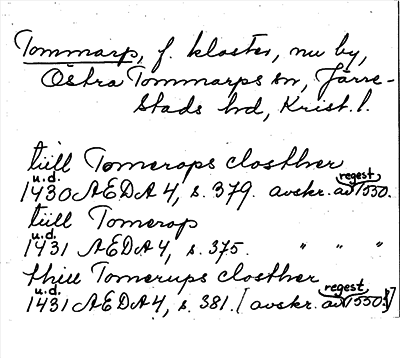 Tommarp, f. kloster, nu by,
Östra Tommarps sn, Järre-
stads hd, Krist. l.
tiill Tomerops closther
u.d. regest
1430 AEDA 4, s. 379. avskr. av 1550.
tiill Tomerop
u.d.
1431 AEDA 4, s. 375. " " "
thiill Tomerups closther
u.d. regest
1431 AEDA 4, s. 381. [avskr. av 1550.]